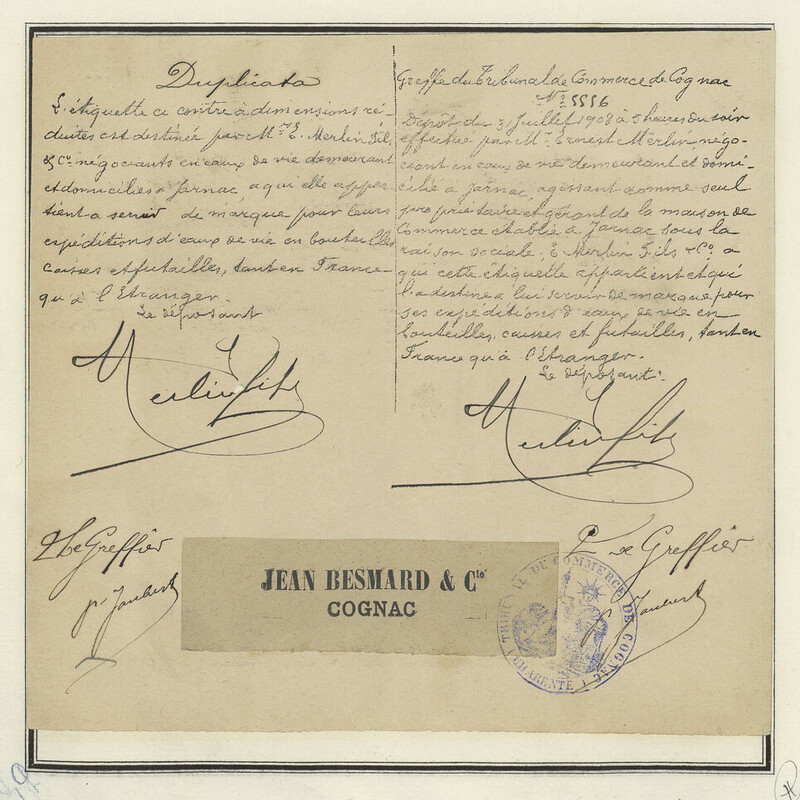 Duplicata
L'étiquette ci contre à dimensions ré-
duites est destinée par Mr E. Merlin Fils
& Cie négociants en eaux de vie demeurant
et domiciliés à Jarnac, a qui elle appar
tient a servir de marque pour leurs
expéditions d'eaux de vie en bouteilles
caisses et futailles, tant en France
qu'à l'Etranger.
Le déposant
Merlin fils
Greffe du Tribunal de Commerce de Cognac
No 5556
Dépôt du 3 Juillet 1908 à 5 heures du soir
effectué par Mr Ernest Merlin négo-
ciant en eaux de vie demeurant et domi-
cilié à Jarnac, agissant comme seul
propriétaire et gérant de la maison de
Commerce établie à Jarnac sous la
raison sociale, E Merlin Fils & Co. a
qui cette etiquette appartient et qui
l'a destinée a lui servir de marque pour
ses expéditions d'eaux de vie en
bouteilles, caisses et futailles, tant en
France qu'à l'Etranger.
Le déposant:
Merlin fils
Le Greffier
pr Joubert
P. Le Greffier
pr Joubert
JEAN BESMARD & Cie
COGNAC
TRIBUNAL DE COMMERCE DE COGNAC
(CHARENTE)